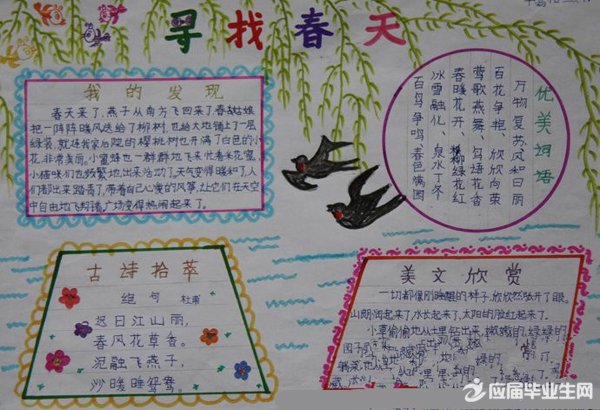 寻找春天
我的发现
春天来了,燕子从南方飞回来了,春姑娘
把一阵阵暖风送给了柳树,也给大地铺上了一层
绿装,就连我家后院的樱桃树也开满了白色的小
花,非常美丽。小蜜蜂也一群群地飞来忙着采花蜜,
小猫咪们也频繁地出来活动了,天气变得暖和了,人
们都出来踏青了,带着自己心爱的风筝,让它们在天空
中自由地飞翔着,广场变得热闹起来了。
优美词语
万物复苏 风和日丽
百花争艳、欣欣向荣
莺歌燕舞、鸟语花香
春暖花开、柳绿花红
冰雪融化、泉水丁冬
百鸟争鸣、春色满园
古诗拾萃
绝句 杜甫
迟日江山丽,
春风花草香。
泥融飞燕子,
沙暖睡鸳鸯。
美文欣赏
一切都像刚睡醒的样子,欣欣然张开了眼。
山朗润起来了,水长起来了,太阳的脸红起来了。
小草偷偷地从土里钻出来,嫩嫩的,绿绿的,
应届毕业生网